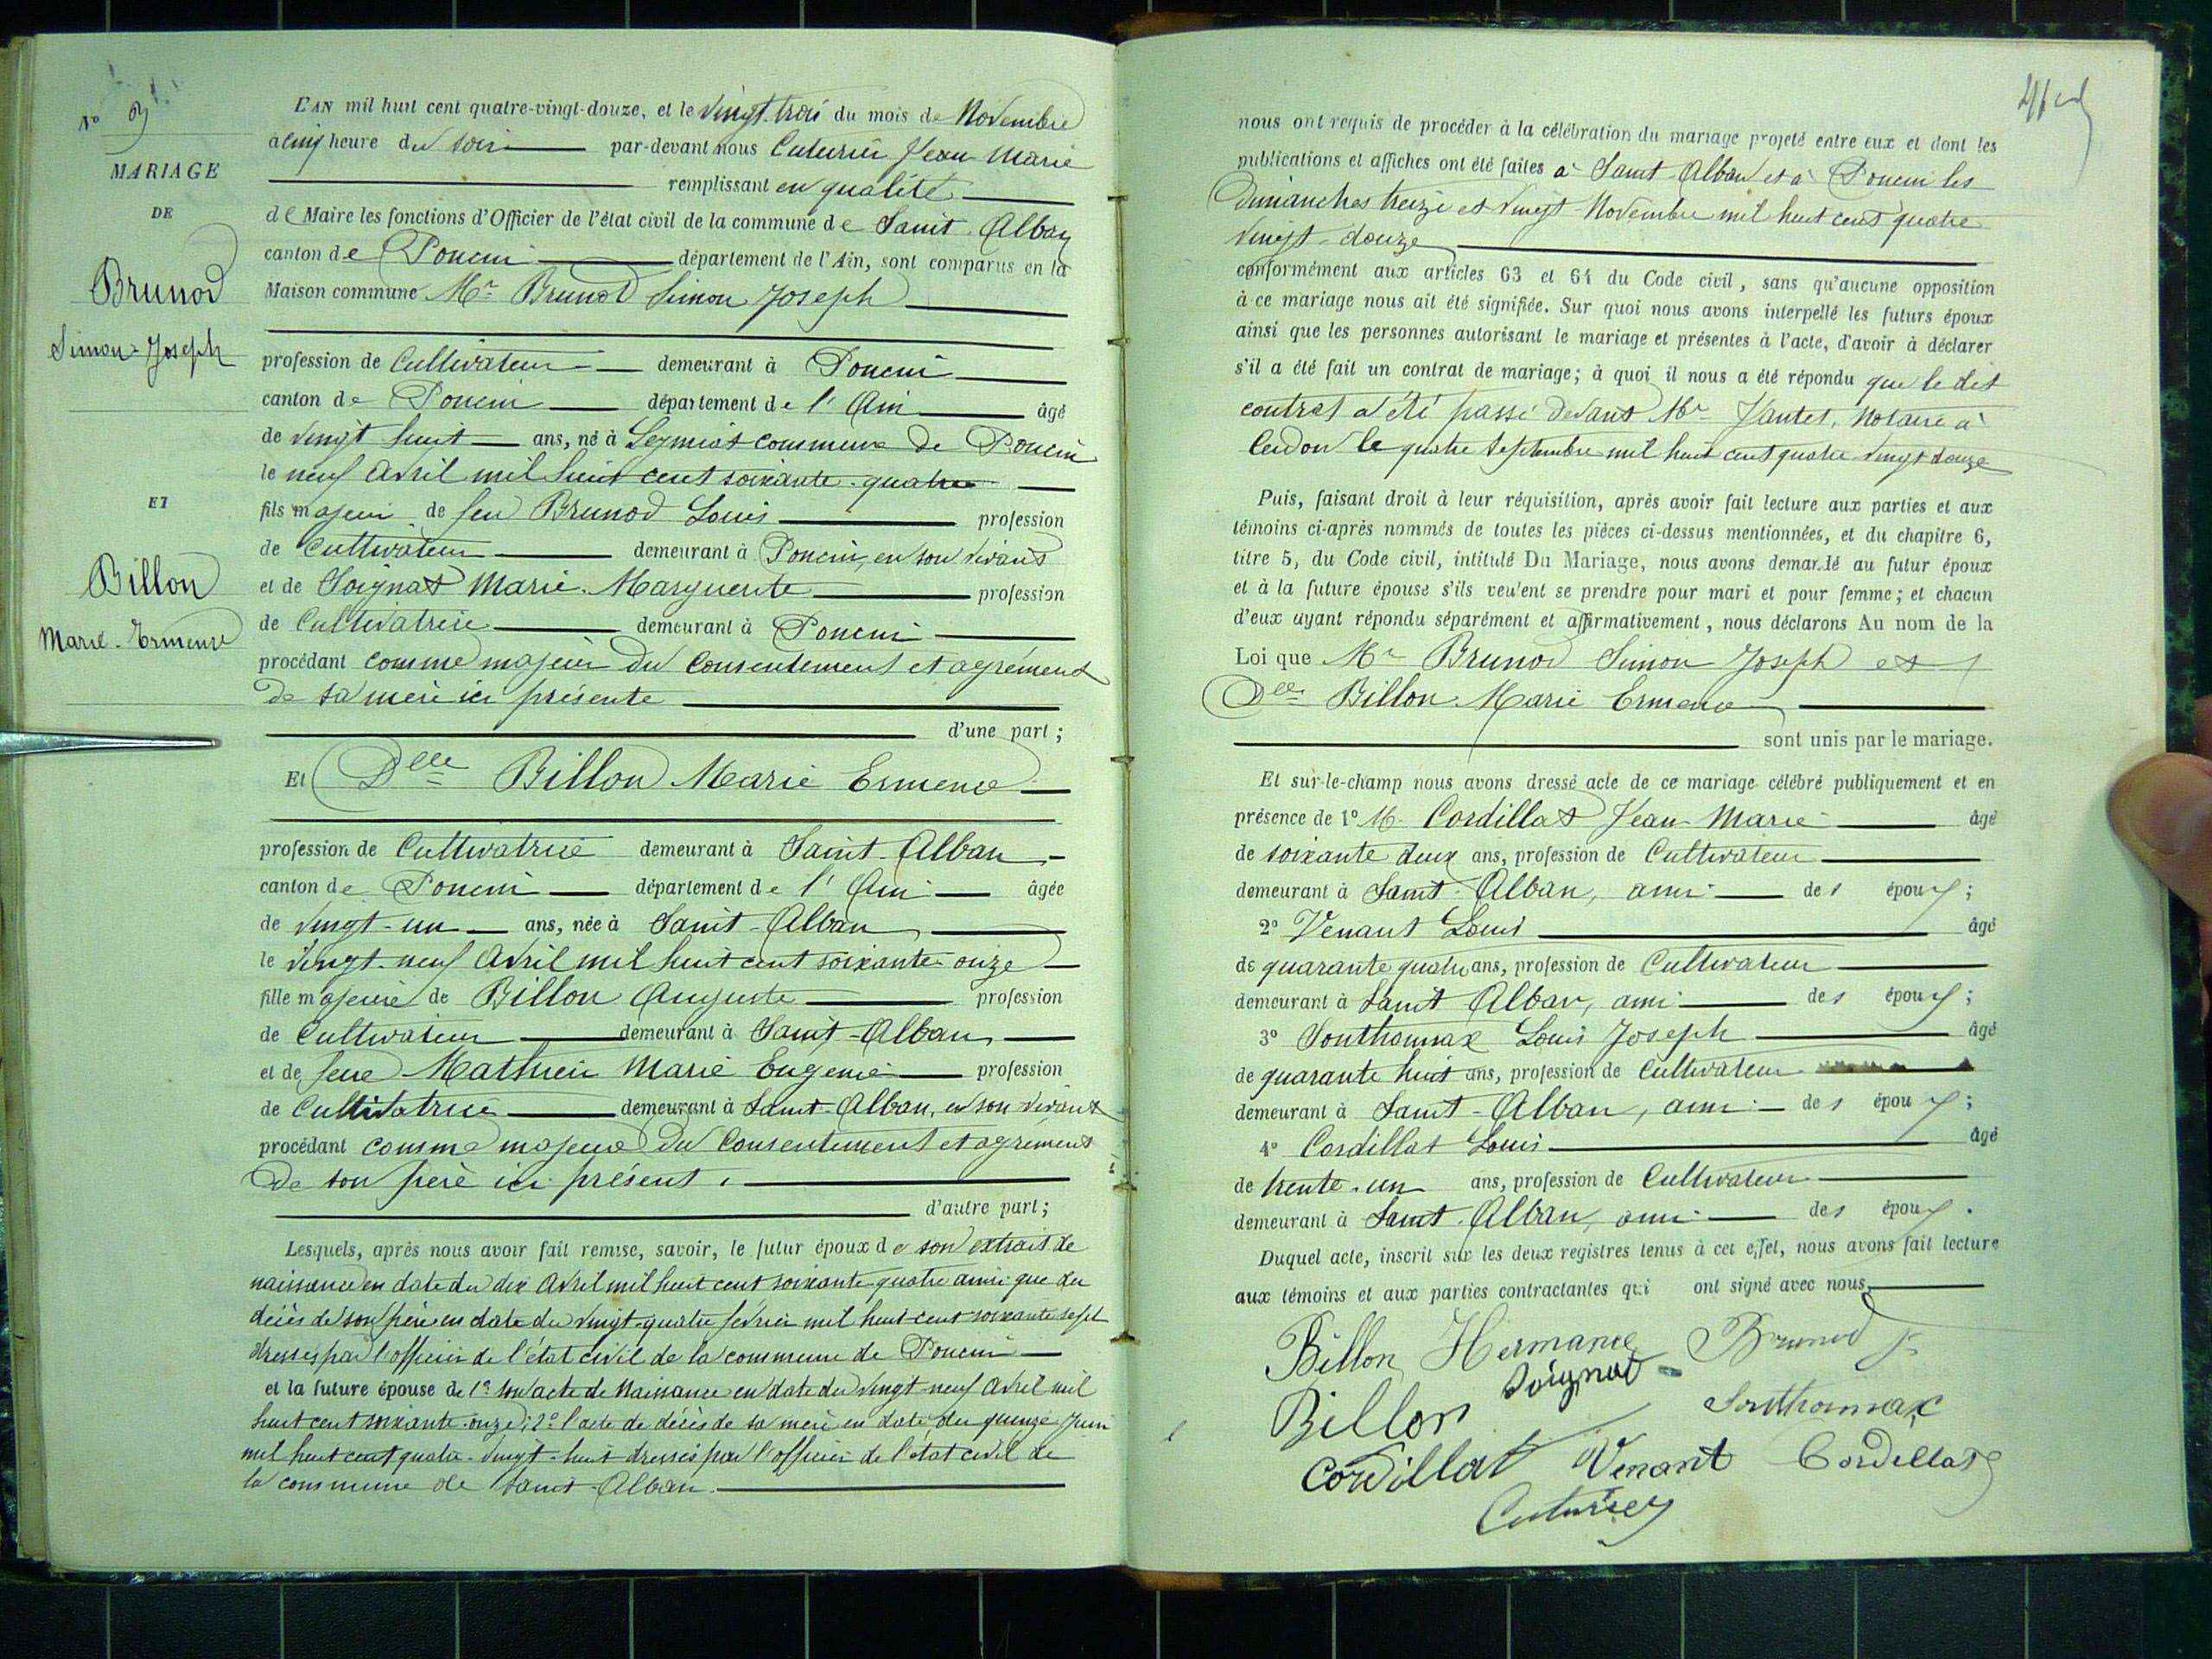 N° 9
MARIAGE
DE
Brunod
Simon-Joseph
ET
Billon
Marie-Ermence
L'AN mil huit cent quatre-vingt-douze, et le vingt-trois du mois de Novembre
à cinq heure du soir par-devant nous Cuturier Jean Marie
remplissant en qualité
de Maire les fonctions d'Officier de l'état civil de la commune de Saint-Alban
canton de Poncin département de l'Ain, sont comparus en la
Maison commune Mr Brunod Simon Joseph
profession de Cultivateur demeurant à Poncin
canton de Poncin département de l'Ain âgé
de vingt huit ans, né à Leymiat commune de Poncin
le neuf Avril mil huit cent soixante-quatre
fils majeur de feu Brunod Louis profession
de Cultivateur demeurant à Poncin, en son vivant
et de Soignat Marie-Marguerite profession
de Cultivatrice demeurant à Poncin
procédant comme majeur du Consentement et agrément
de sa mère ici présente
d'une part;
Et Delle Billon Marie Ermence
profession de Cultivatrice demeurant à Saint-Alban
canton de Poncin département de l'Ain âgée
de vingt-un ans, née à Saint-Alban
le vingt-neuf Avril mil huit cent soixante-onze
fille majeure de Billon Auguste profession
de Cultivateur demeurant à Saint-Alban
et de feue Mathieu Marie Eugenie profession
de Cultivatrice demeurant à Saint-Alban, en son vivant
procédant comme majeure du Consentement et agrément
de son père ici présent.
d'autre part;
Lesquels, après nous avoir fait remise, savoir, le futur époux de son extrait de
naissance en date du dix Avril mil huit cent soixante-quatre ainsi que du
décès de son père en date du vingt-quatre février mil huit cent soixante sept
dressés par l'officier de l'état civil de la commune de Poncin
et la future épouse de 1° son acte de Naissance en date du vingt-neuf Avril mil
huit cent soixante-onze; 2° l'acte de décès de sa mère en date du quinze Juin
mil huit cent quatre-vingt-huit dressés par l'officier de l'état civil de
la commune de Saint-Alban.
nous ont requis de procéder à la célébration du mariage projeté entre eux et dont les
publications et affiches ont été faites à Saint-Alban et à Poncin les
Dimanches treize et vingt Novembre mil huit cent quatre
vingt-douze
conformément aux articles 63 et 64 du Code civil, sans qu'aucune opposition
à ce mariage nous ait été signifiée. Sur quoi nous avons interpellé les futurs époux
ainsi que les personnes autorisant le mariage et présentes à l'acte, d'avoir à déclarer
s'il a été fait un contrat de mariage; à quoi il nous a été répondu que le dit
contrat a été passé devant Mr Jantet, Notaire à
Cerdon le quatre Septembre mil huit cent quatre vingt douze
Puis, faisant droit à leur réquisition, après avoir fait lecture aux parties et aux
témoins ci-après nommés de toutes les pièces ci-dessus mentionnées, et du chapitre 6,
titre 5, du Code civil, intitulé Du Mariage, nous avons demandé au futur époux
et à la future épouse s'ils veulent se prendre pour mari et pour femme; et chacun
d'eux ayant répondu séparément et affirmativement, nous déclarons Au nom de la
Loi que Mr Brunod Simon Joseph et
Delle Billon Marie Ermence
sont unis par le mariage.
Et sur-le-champ nous avons dressé acte de ce mariage célébré publiquement et en
présence de 1° M. Cordillat Jean-Marie âgé
de soixante deux ans, profession de Cultivateur
demeurant à Saint-Alban, ami des époux;
2° Venant Louis âgé
de quarante quatre ans, profession de Cultivateur
demeurant à Saint Alban, ami des époux;
3° Southonnax Louis Joseph âgé
de quarante huit ans, profession de Cultivateur
demeurant à Saint-Alban, ami des époux;
4° Cordillat Louis âgé
de trente-un ans, profession de Cultivateur
demeurant à Saint-Alban, ami des époux.
Duquel acte, inscrit sur les deux registres tenus à cet effet, nous avons fait lecture
aux témoins et aux parties contractantes qui ont signé avec nous
Billon Hermance Brunod
Soignat
Billon Southonnax
Cordillat Venant Cordillat
Cuturier